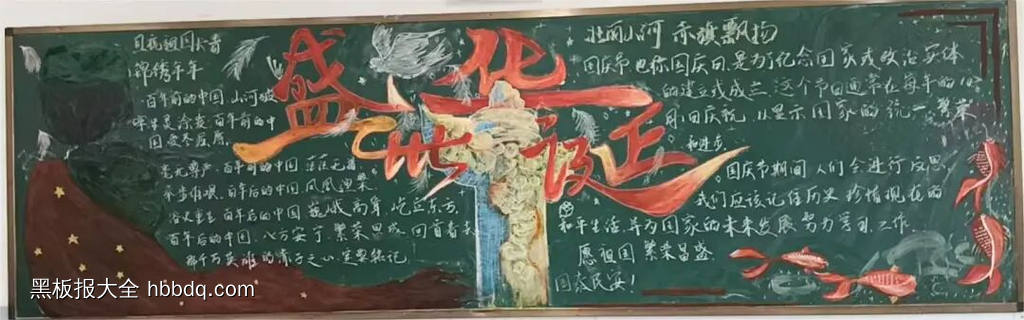 目祝祖国长青
锦绣年年
百年前的中国 山河破
百年前的中
百年前的中国
百年后的中国 凤凰迎来
百年后的中国 巍峨高耸 屹立东方
百年后的中国 八方安宁 繁荣昌盛 回首看去
那千万英雄的赤子之心 定要铭记
盛世华诞
壮丽山河 赤旗飘扬
国庆节也称国庆日是为了纪念国家或政治实体
的建立或成立 这个节日通常在每年的10
月1日庆祝 以显示国家的统一 繁荣
和进步
国庆节期间 人们会进行反思
我们应该记住历史 珍惜现在的
和平生活 并为国家的未来发展努力学习工作
愿祖国 繁荣昌盛
国泰民安！
黑板报大全 hbbdq.com